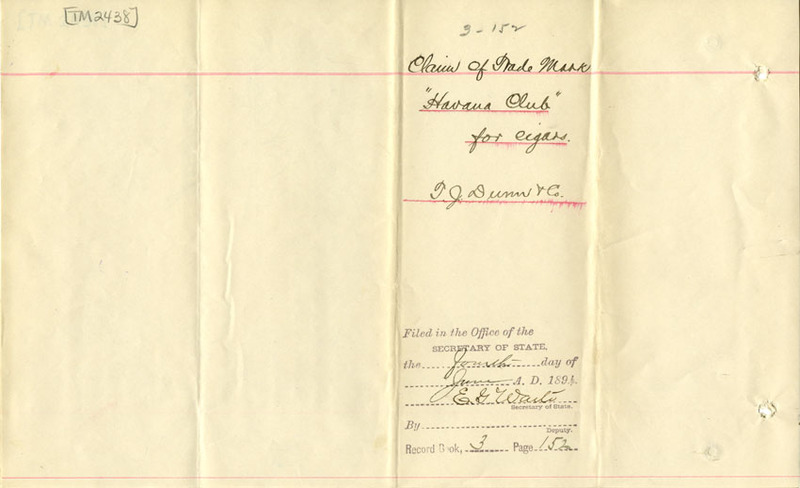 [TM2438]
3-152
Claim of Trade Mark
"Havana Club"
for cigars.
T. J. Dunn & Co.
Filed in the Office of the
SECRETARY OF STATE,
the Fourth day of
June A. D. 1894.
E. G. Waite
Secretary of State.
By
Deputy.
Record Book, 3 Page 152